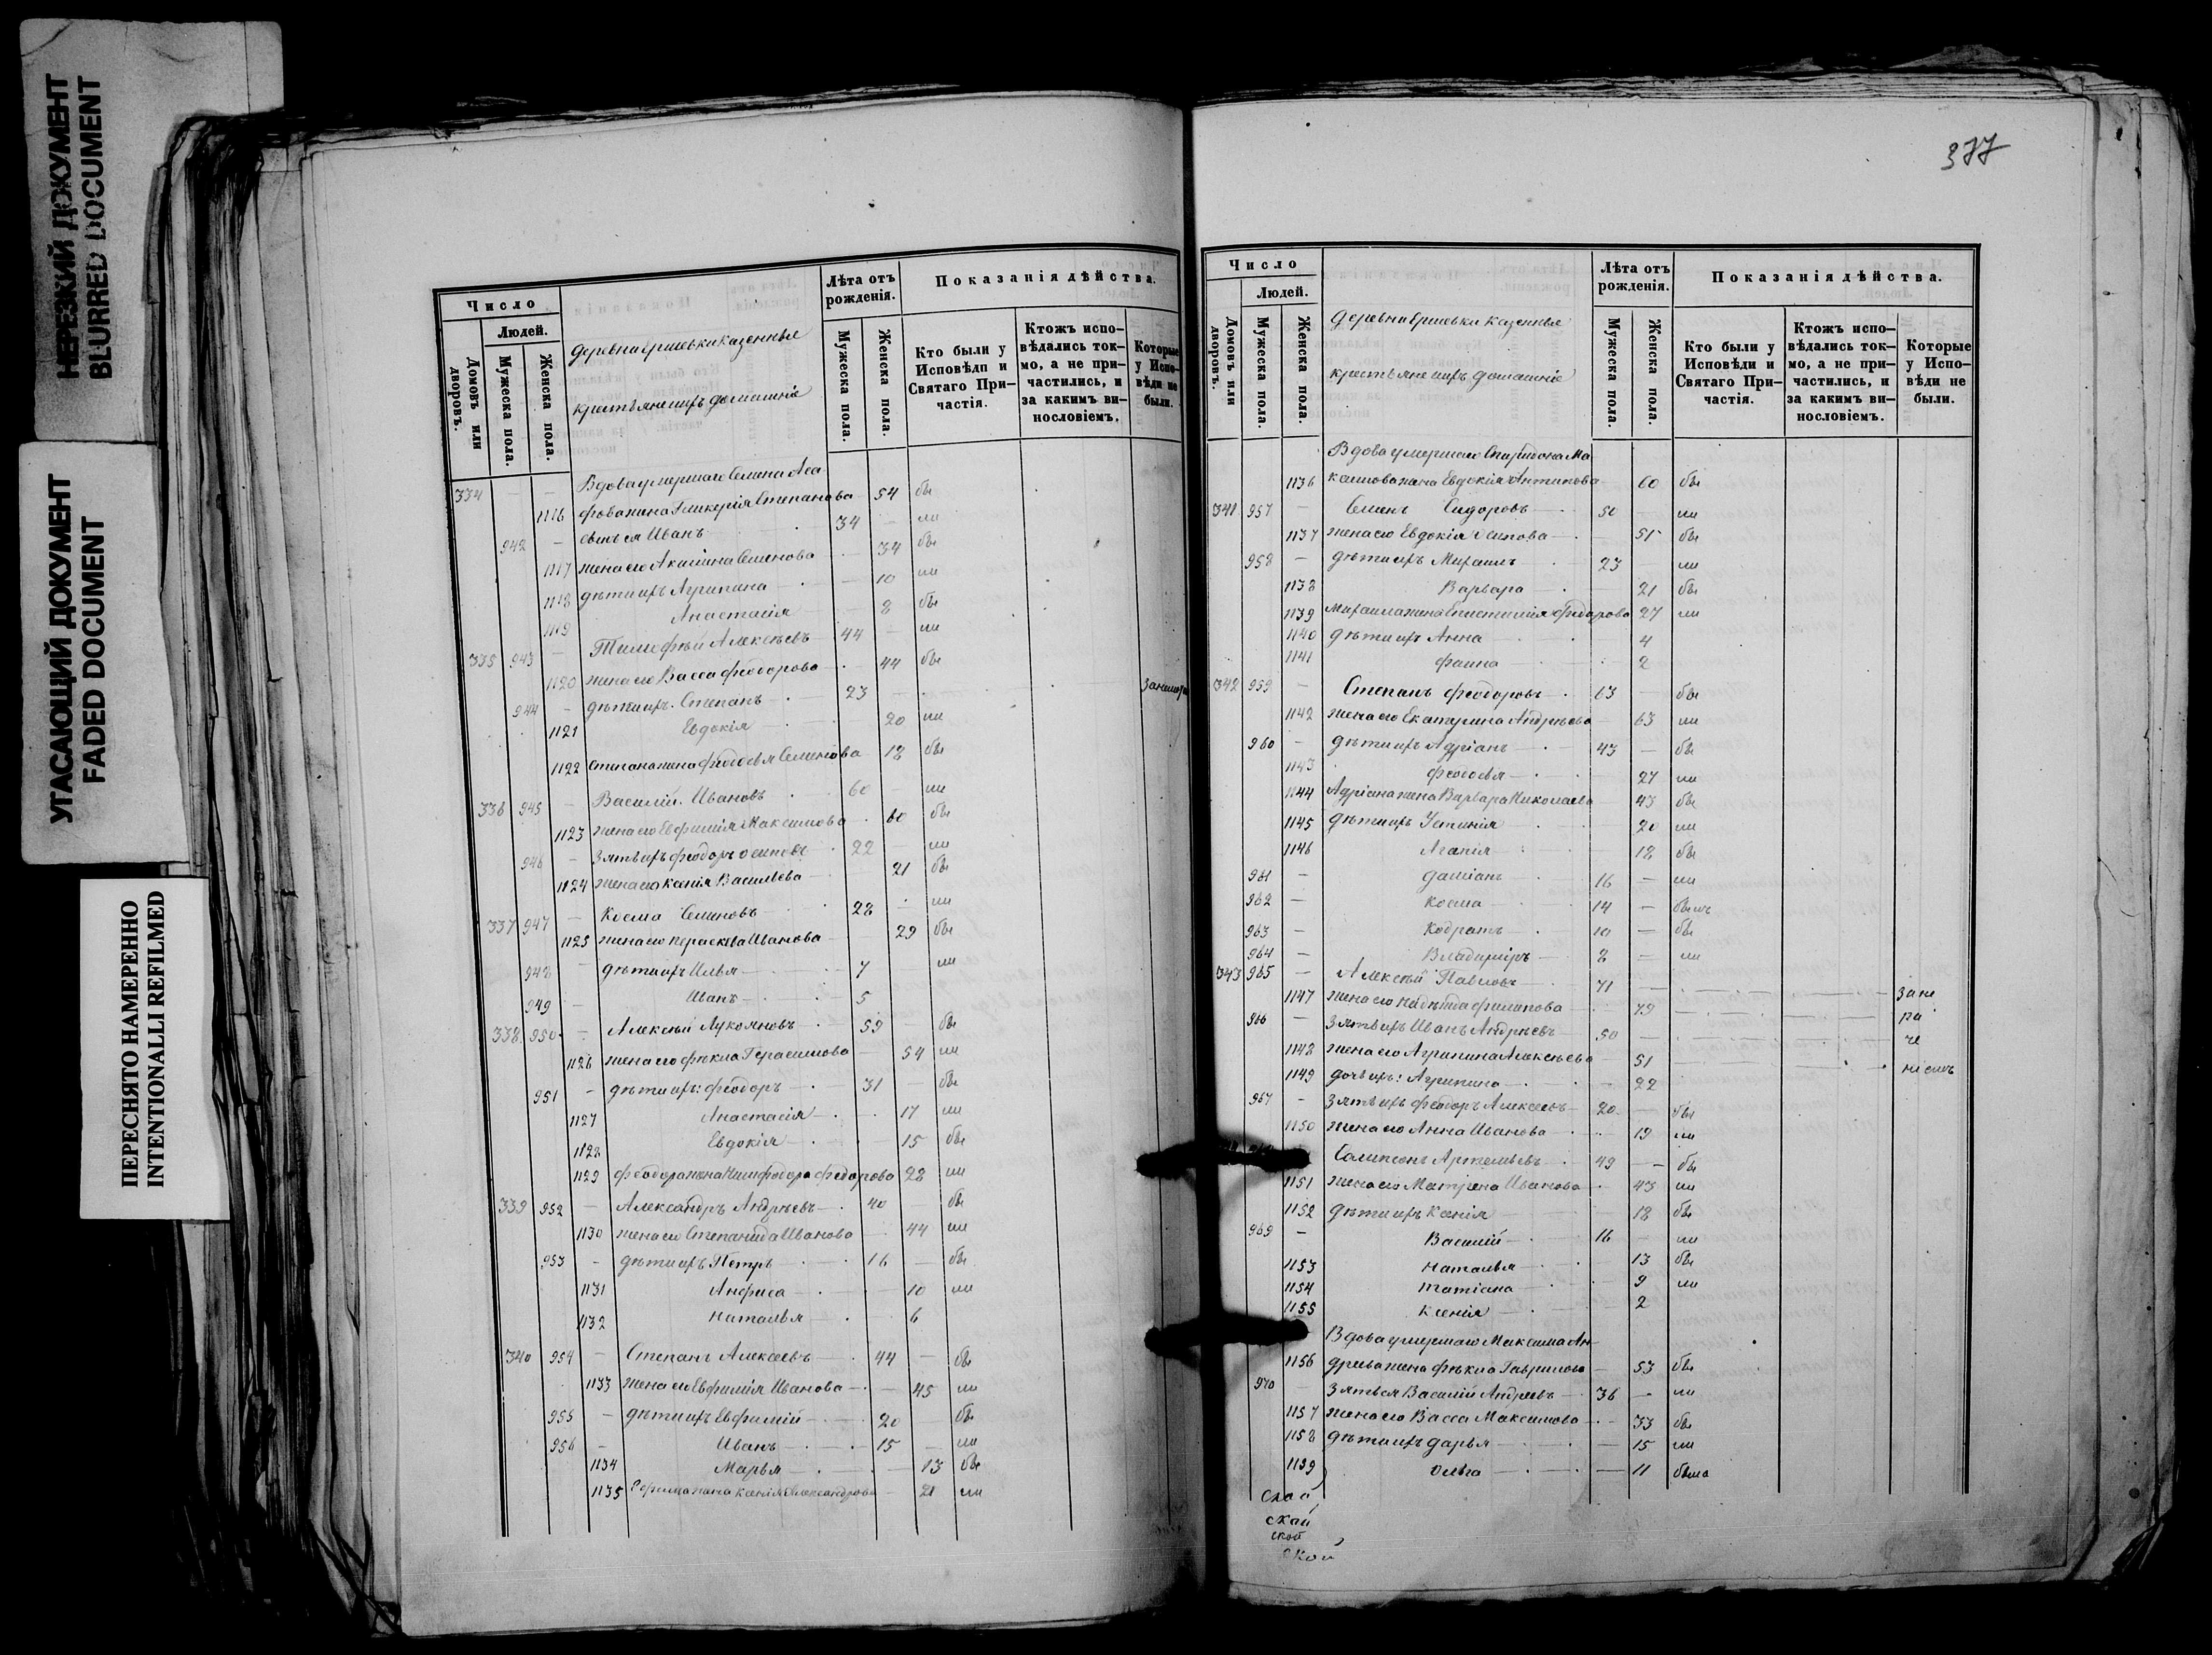 НЕРЕЗКИЙ ДОКУМЕНТ
BLURRED DOCUMENT
УГАСАЮЩИЙ ДОКУМЕНТ
FADED DOCUMENT
ПЕРЕСНЯТО НАМЕРЕННО
INTENTIONALLI REFILMED
Число
Людей.
Домовъ или дворовъ.
Мужеска пола.
Женска пола.
деревни Ершевки казенные
крестьяне ихъ домашніе
Лѣта отъ рожденія.
Мужеска пола.
Женска пола.
Показанія дѣйства.
Кто были у Исповѣди и Святаго При-частія.
Ктожъ испо-вѣдались ток-мо, а не при-частились, и за какимъ ви-нословіемъ.
Которые у Испо-вѣди не были.
334 — — Вдова умершаго Семена Ага-
1116 фова жена Гликерія Степанова 54 бы
942 — сынъ ея Иванъ 34 — ли
1117 жена его Акилина Семенова 34 бы
1118 дѣти ихъ Агрипина 10 ли
1119 Анастасія 8 бы
335 943 — Тимофѣй Алексѣевъ 44 — ли
1120 жена его Васса Феодорова 44 бы
944 — дѣти ихъ. Степанъ 23
1121 Евдокія 20 ли
1122 Степана жена Феодосья Семенова 18 бы
336 945 — Василій Ивановъ 60 — ли
1123 жена его Евфимія Максимова 60 бы
946 — Зять ихъ Феодоръ Осиповъ 22 — ли
1124 жена его Ксенія Васильева 21 бы
337 947 — Косма Семеновъ 28 ли
1125 жена его Параскева Иванова 29 бы
948 — дѣти ихъ Илья 7 ли
949 — Иванъ 5
338 950 — Алексѣй Лукояновъ 59 — бы
1126 жена его Фекла Герасимова 54 ли
951 — дѣти ихъ: Феодоръ 31 — бы
1127 Анастасія 17 ли
1128 Евдокія 15 бы
1129 Феодора жена Нимфодора Федорова 28 ли
339 952 — Александръ Андрѣевъ 40 бы
1130 жена его Степанида Иванова 44 ли
953 — дѣти ихъ Петръ 16 — бы
1131 Анфиса 10 ли
1132 Наталья 6
340 954 — Степанъ Алексѣевъ 44 — бы
1133 жена его Евфимія Иванова 45 ли
955 — дѣти ихъ Евфимій 20 бы
956 — Иванъ 15 — ли
1134 Марья 13 бы
1135 Ефима жена Ксенія Александрова 21 ли
377
Число
Людей.
Домовъ или дворовъ.
Мужеска пола.
Женска пола.
деревни Ершевки казенные
крестьяне ихъ домашніе
Лѣта отъ рожденія.
Мужеска пола.
Женска пола.
Показанія дѣйства.
Кто были у Исповѣди и Святаго При-частія.
Ктожъ испо-вѣдались ток-мо, а не при-частились, и за какимъ ви-нословіемъ.
Которые у Испо-вѣди не были.
Вдова умершаго Спиридона Ма-
1136 ксимова жена Евдокія Антипова 60 бы
341 957 — Семенъ Сидоровъ 50 — ли
1137 жена его Евдокія Осипова 51 бы
958 — дѣти ихъ Михаилъ 23 — ли
1138 Варвара 21 бы
1139 Михаила жена Епистимія Федорова 27 ли
1140 дѣти ихъ Анна 4
1141 Фаина 2
342 959 — Степанъ Феодоровъ 63 — бы
1142 жена его Екатерина Андрѣева 63 ли
960 — дѣти ихъ Адріанъ 43 — бы
1143 Феодосья 27 ли
1144 Адріана жена Варвара Николаева 43 бы
1145 дѣти ихъ Устинія 20 ли
1146 Агапія 18 бы
961 — Даміанъ 16 — ли
962 — Косма 14 — былъ
963 — Кодратъ 10 — бы
964 — Владиміръ 8 — ли
343 965 — Алексѣй Павловъ 71 — зане
1147 жена его Надежда Филипова 79 ра
966 — Зять ихъ Иванъ Андрѣевъ 50 — че
1148 жена его Агрипина Алексѣева 51 ніемъ
1149 дочь ихъ: Агрипина 22
967 — Зять ихъ Феодоръ Алексѣевъ 20 — бы
1150 жена его Анна Иванова 19 ли
Сампсонъ Артемьевъ 49 — бы
1151 жена его Матрена Иванова 43 ли
1152 дѣти ихъ Ксенія 18 бы
969 — Василій 16 — ли
1153 Наталья 13 бы
1154 Татіана 9 ли
1155 Ксенія 2
Вдова умершаго Максима Ан-
1156 дреева жена Фекла Гаврилова 53 бы
970 — Зять ея Василій Андреевъ 36 — ли
1157 жена его Васса Максимова 33 бы
1158 дѣти ихъ Дарья 15 ли
1159 Ольга 11 была
ской
ской
ской